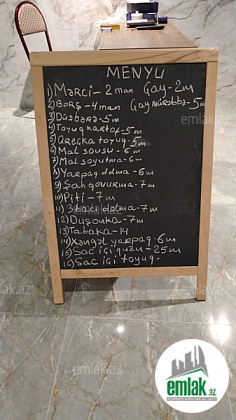 MENYU
1) Mərci - 2 man Çay - 2m
2) Borş - 4 man Çay mürəbbə - 5m
3) Düşbərə - 5m
4) Toyuq kartof - 5m
5) Qreçka toyuq - 5m
6) Mal sousu - 6m
7) Mal soyutma - 6m
8) Yarpaq dolma - 6m
9) Şah qovurma - 7m
10) Piti - 7m
11) dolma - 7m
12) Duşonka - 7m
13) Tabaka - 14
14) Xəngəl yarpaq - 6m
15) Sac içi quzu - 25m
16) Sac içi toyuq -
emlak.az
emlak.az
emlak.az
emlak.az